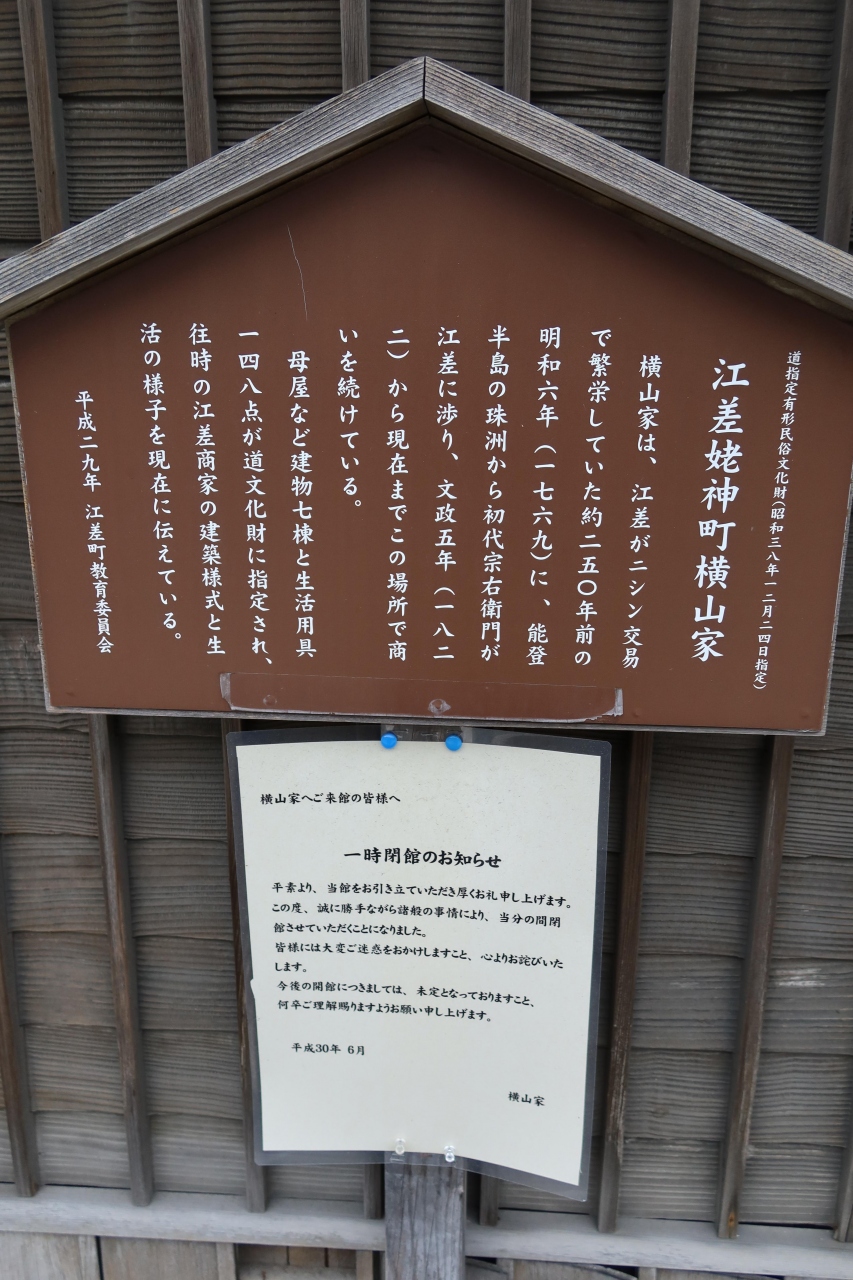 道指定有形民俗文化財(昭和三八年一二月二四日指定)
江差姥神町横山家
横山家は、江差がニシン交易
で繁栄していた約二五〇年前の
明和六年(一七六九)に、能登
半島の珠洲から初代宗右衛門が
江差に渉り、文政五年(一八二
二)から現在までこの場所で商
いを続けている。
母屋など建物七棟と生活用具
一四八点が道文化財に指定され、
往時の江差商家の建築様式と生
活の様子を現在に伝えている。
平成二九年 江差町教育委員会
横山家へご来館の皆様へ
一時閉館のお知らせ
平素より、当館をお引き立ていただき厚くお礼申し上げます。
この度、誠に勝手ながら諸般の事情により、当分の間閉
館させていただくことになりました。
皆様には大変ご迷惑をおかけしますこと、心よりお詫びいた
します。
今後の開館につきましては、未定となっておりますこと、
何卒ご理解賜りますようお願い申し上げます。
平成30年 6月
横山家